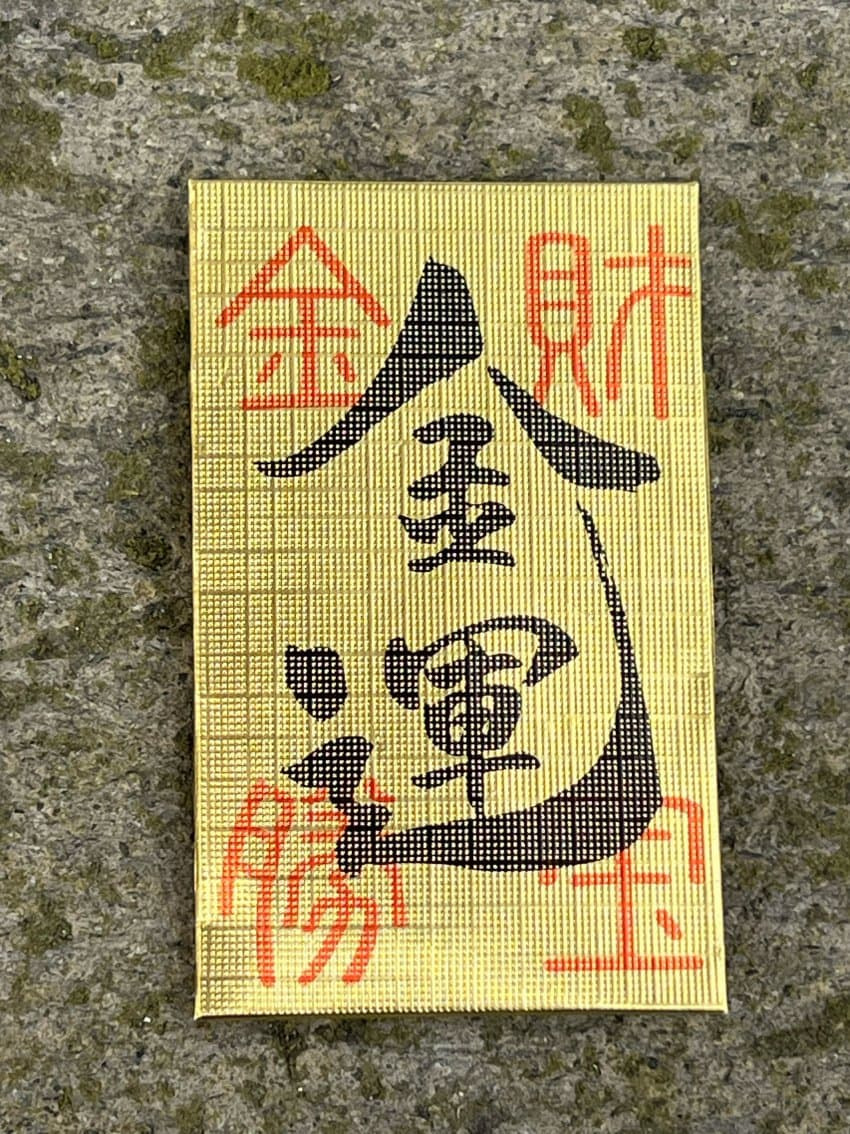 金運
財宝
金